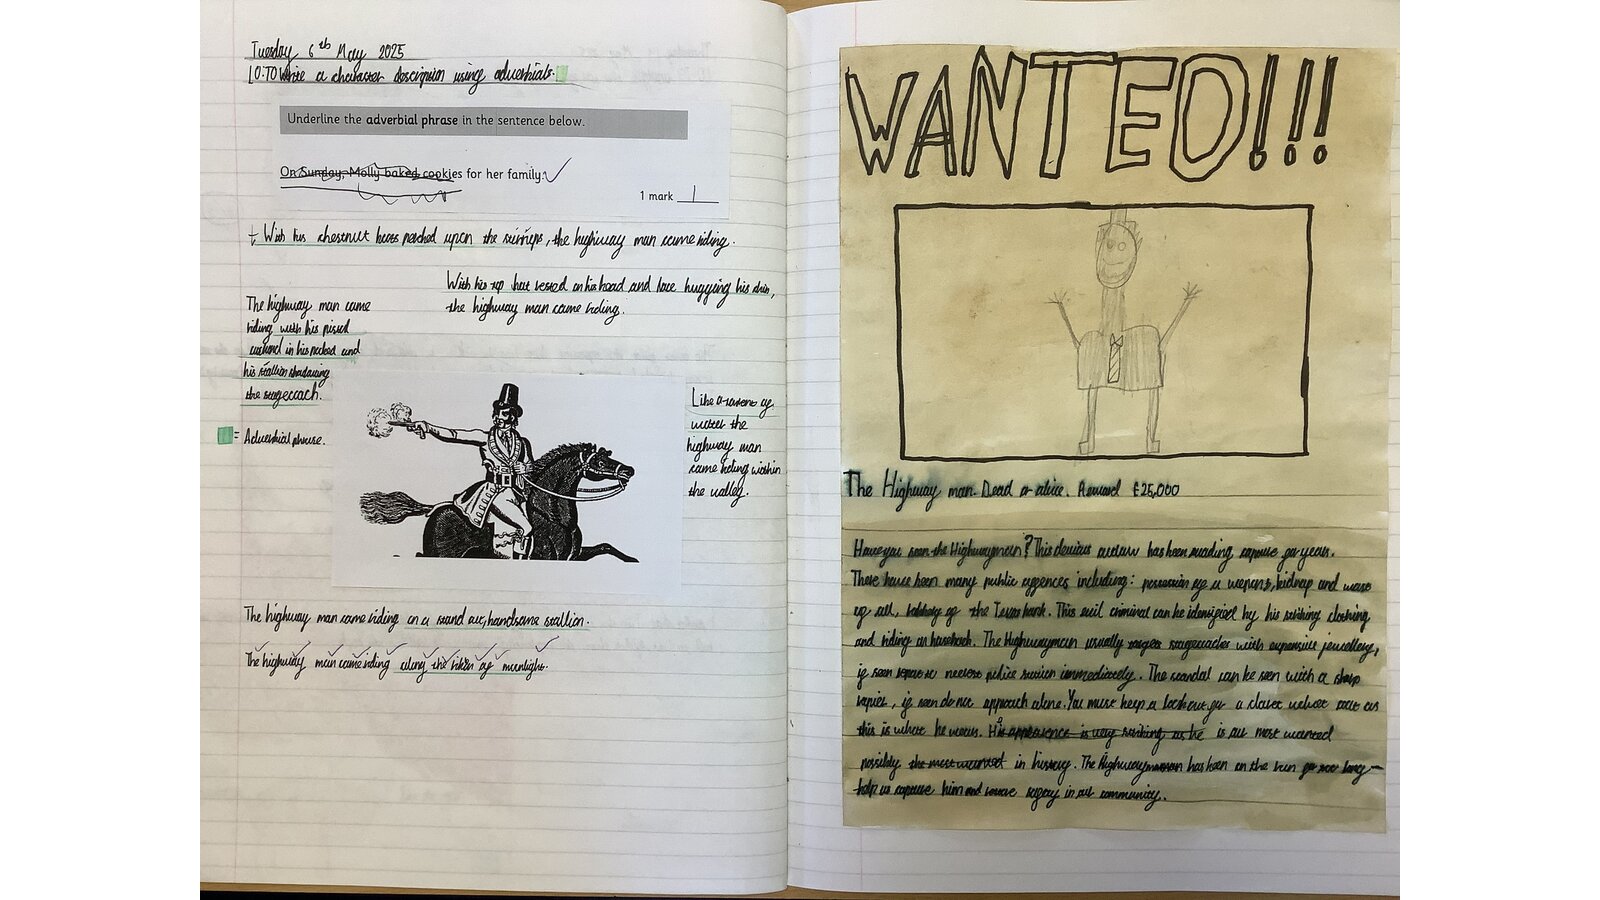 Tuesday 6th May 2025
LO:TO Write a character description using adverbials.
Underline the adverbial phrase in the sentence below.
On Sunday, Molly baked cookies for her family.
1 mark 1
With his chestnut boots perched upon the stirrups, the highway man came riding.
With his top hat rested on his head and lace hugging his chin,
the highway man came riding.
The highway man came
riding with his pistol
in his pocket and
his stallion shadowing
the stagecoach.
= Adverbial phrase.
Like a of
water the
highway man
came riding within
the valley.
The highway man came riding on a stand out, handsome stallion.
The highway man came riding along the of moonlight.
WANTED!!!
The Highway man. Dead or alive. Reward £25,000
Have you seen the Highwayman? This devious outlaw has been evading capture for years.
There have been many public offences including: possession of a weapons, kidnap and worst
of all, robbery of the Texas bank. This evil criminal can be identified by his striking clothing
and riding on horseback. The Highwayman usually targets stagecoaches with expensive jewellery,
if seen report to nearest police station immediately. The scandal can be seen with a sharp
rapier, if seen do not approach alone. You must keep a lookout for a claret velvet coat as
this is what he wears. His appearence is very striking as he is our most wanted
possibly the most wanted in history. The Highwayman has been on the run for too long
help us capture him and in our community.